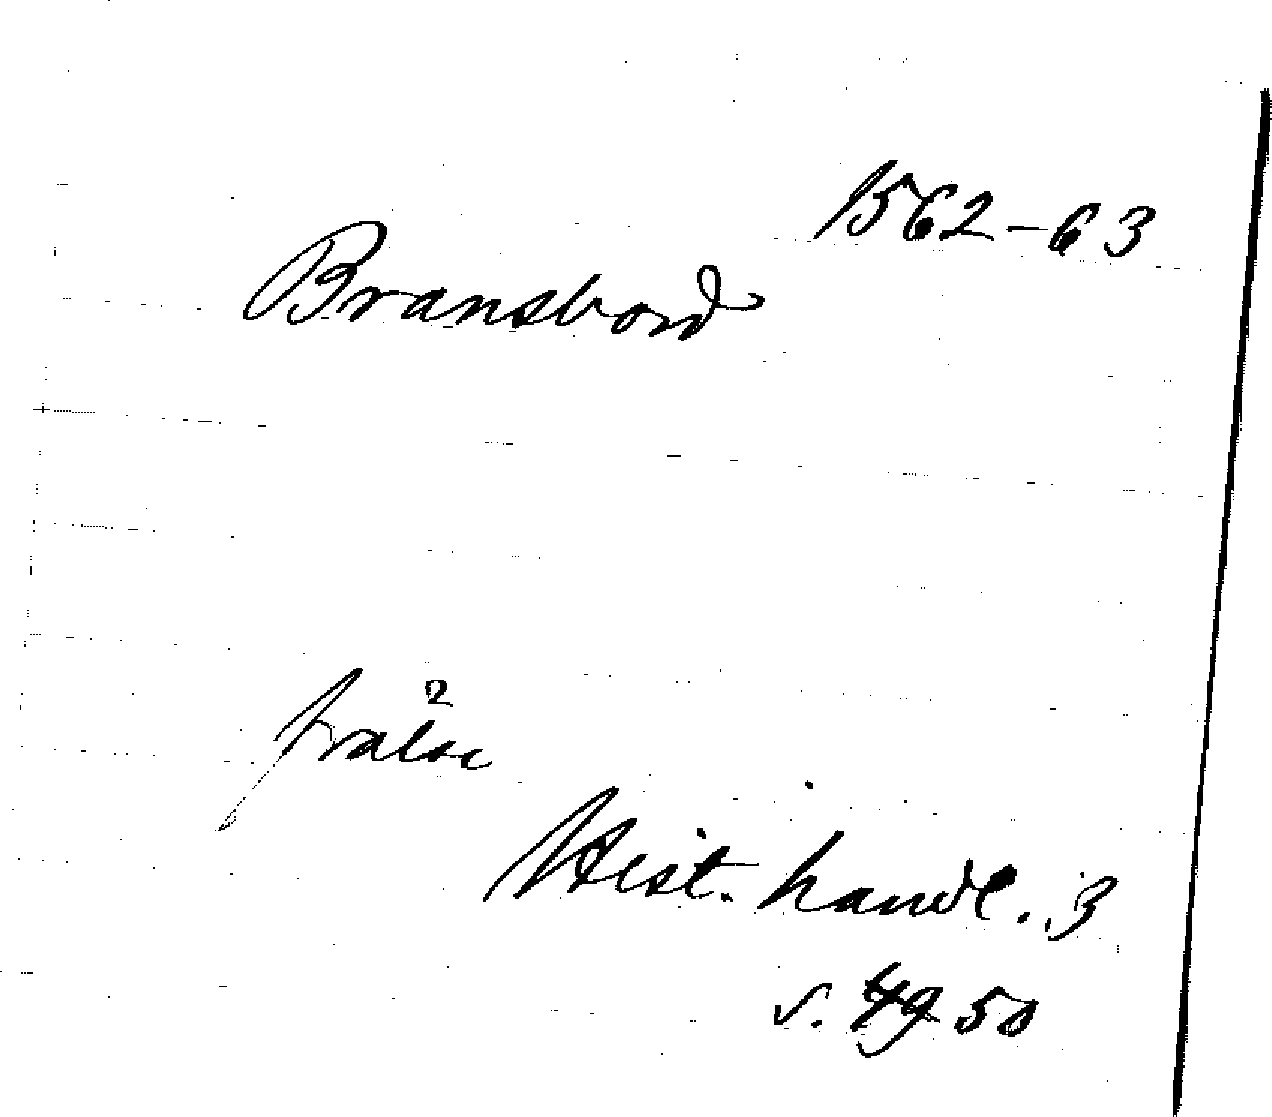 1562-63
Bransbord
frälse
Hist. handl. 3
s. 49 50